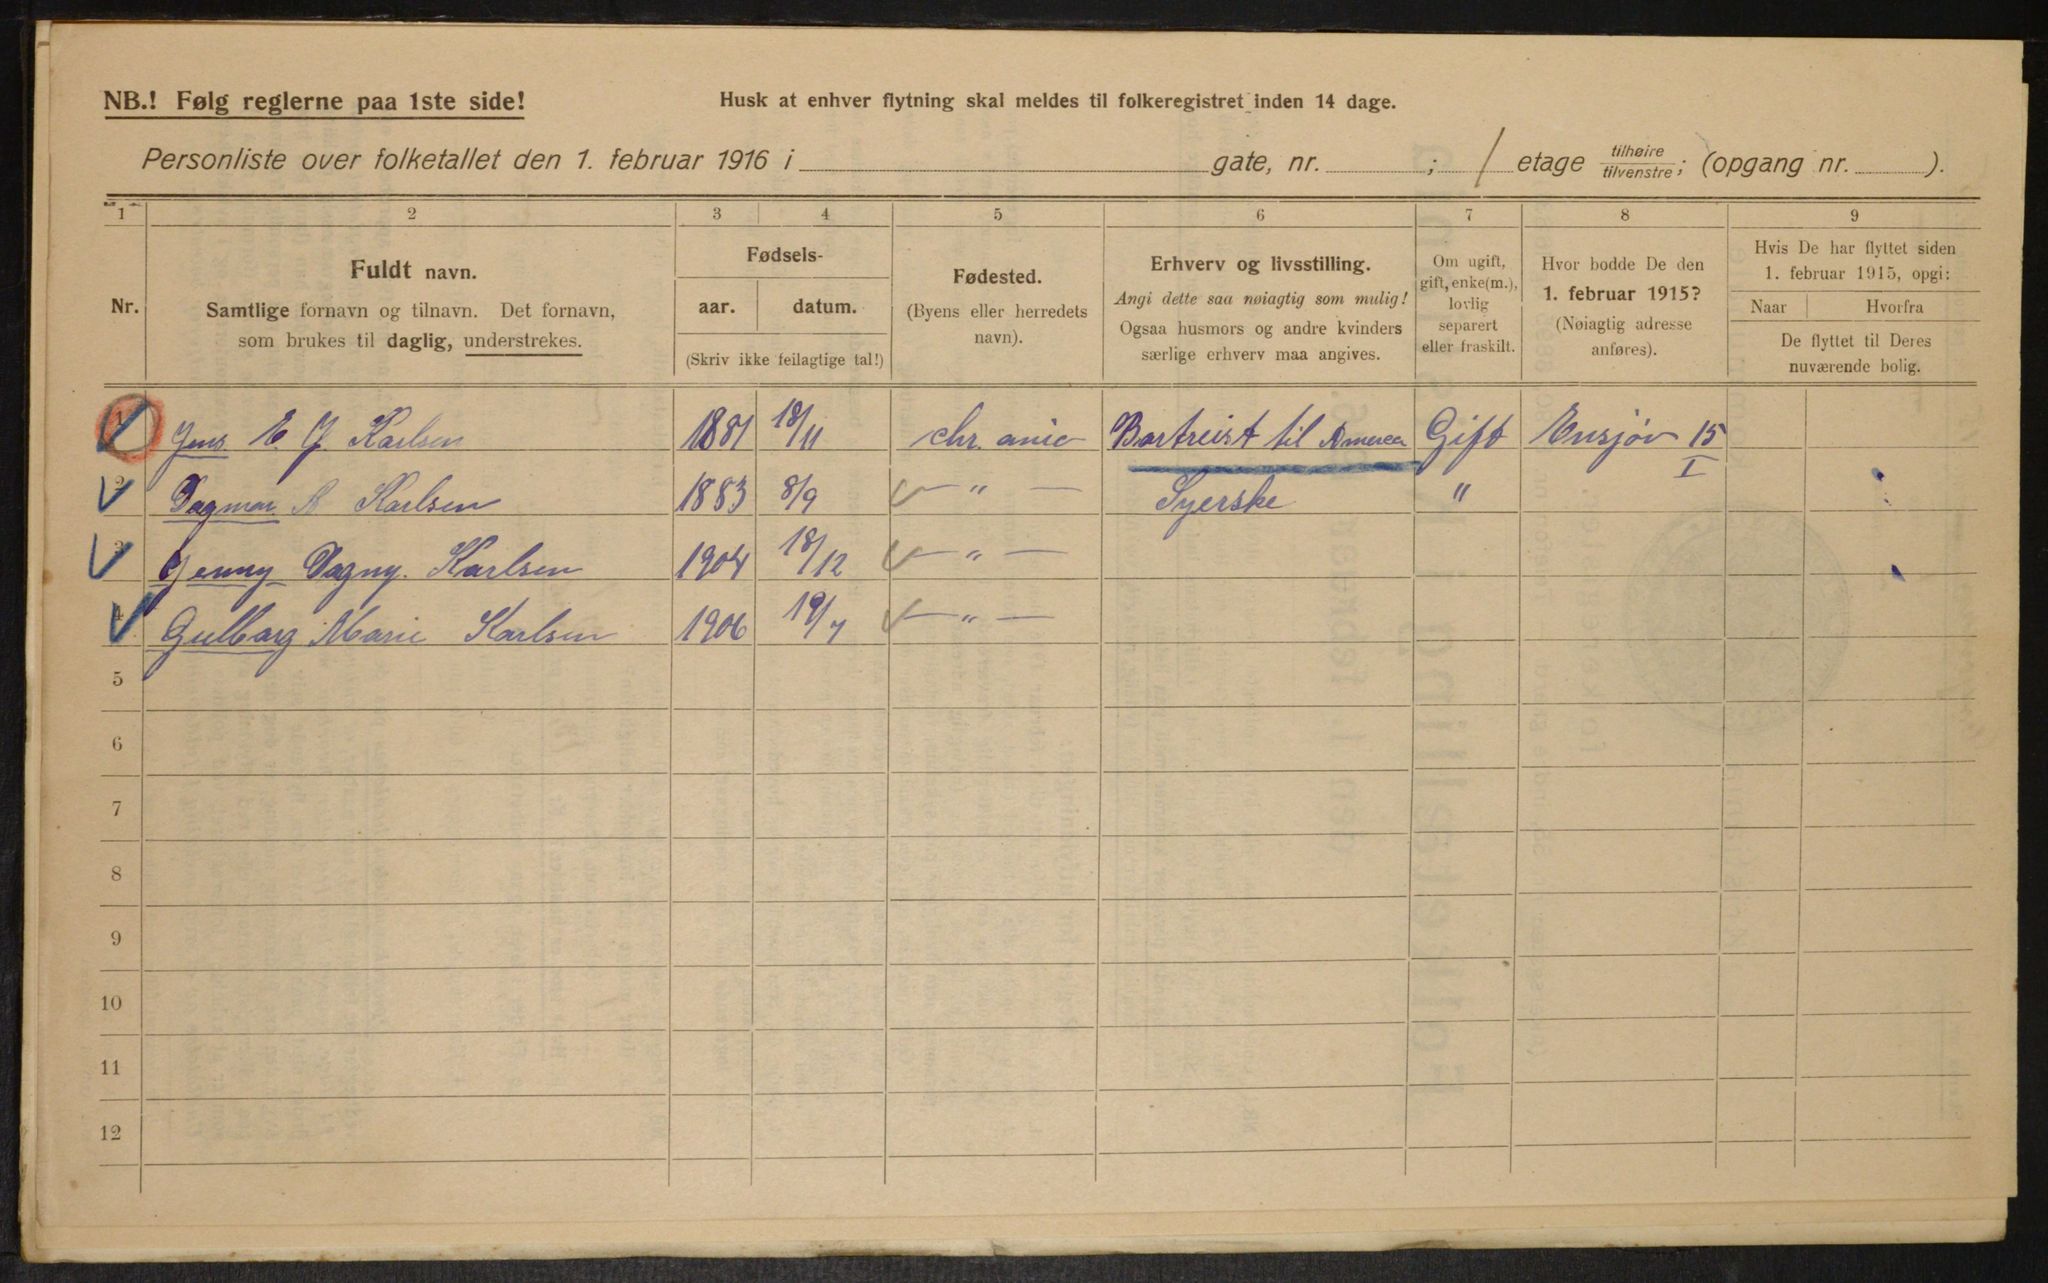 NB.! Følg reglerne paa 1ste side!
Husk at enhver flytning skal meldes til folkeregistret inden 14 dage.
Personliste over folketallet den 1. februar 1916 i gate, nr. ; 1 etage tilhøire/tilvenstre; (opgang nr. ).
1 2 3 4 5 6 7 8 9
Nr.
Fuldt navn.
Samtlige fornavn og tilnavn. Det fornavn,
som brukes til daglig, understrekes.
Fødsels-
aar. datum.
(Skriv ikke feilagtige tal!)
Fødested.
(Byens eller herredets
navn).
Erhverv og livsstilling.
Angi dette saa nøiagtig som mulig!
Ogsaa husmors og andre kvinders
særlige erhverv maa angives.
Om ugift,
gift, enke(m.),
lovlig
separert
eller fraskilt.
Hvor bodde De den
1. februar 1915?
(Nøiagtig adresse
anføres).
Hvis De har flyttet siden
1. februar 1915, opgi:
Naar Hvorfra
De flyttet til Deres
nuværende bolig.
1 Jens E. J. Karlsen 1881 18/11 Chr. ania Bortreist til America Gift Ensjøv 15 I
2 Dagmar A Karlsen 1883 8/9 — " — Syerske "
3 Jenny Dagny. Karlsen 1904 18/12 — " —
4 Gulborg Marie Karlsen 1906 19/7 — " —
5
6
7
8
9
10
11
12